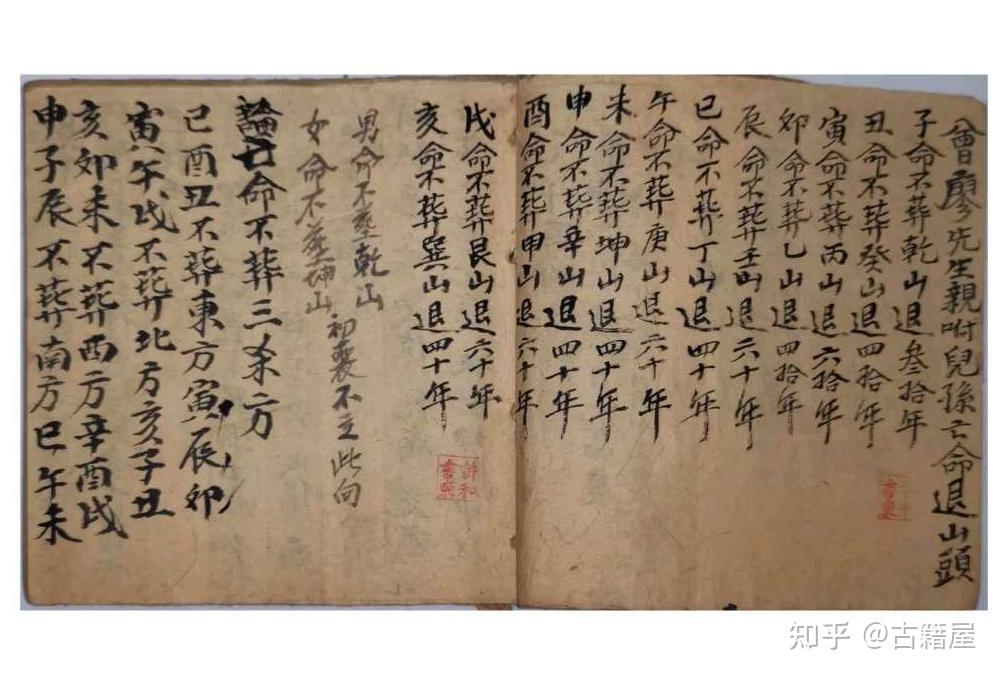 曾廖先生親咐兒孫亡命退山頭
子命不葬乾山退叁拾年
丑命不葬癸山退四拾年
寅命不葬丙山退六拾年
卯命不葬乙山退四拾年
辰命不葬壬山退六十年
巳命不葬丁山退四十年
午命不葬庚山退六十年
未命不葬坤山退四十年
申命不葬辛山退四十年
酉命不葬甲山退六十年
戌命不葬艮山退六十年
亥命不葬巽山退四十年
男命不葬乾山
女命不葬坤山初喪不立此向
論亡命不葬三杀方
巳酉丑不葬東方寅辰卯
寅午戌不葬北方亥子丑
亥卯未不葬西方辛酉戌
申子辰不葬南方巳午未
知乎 @古籍屋